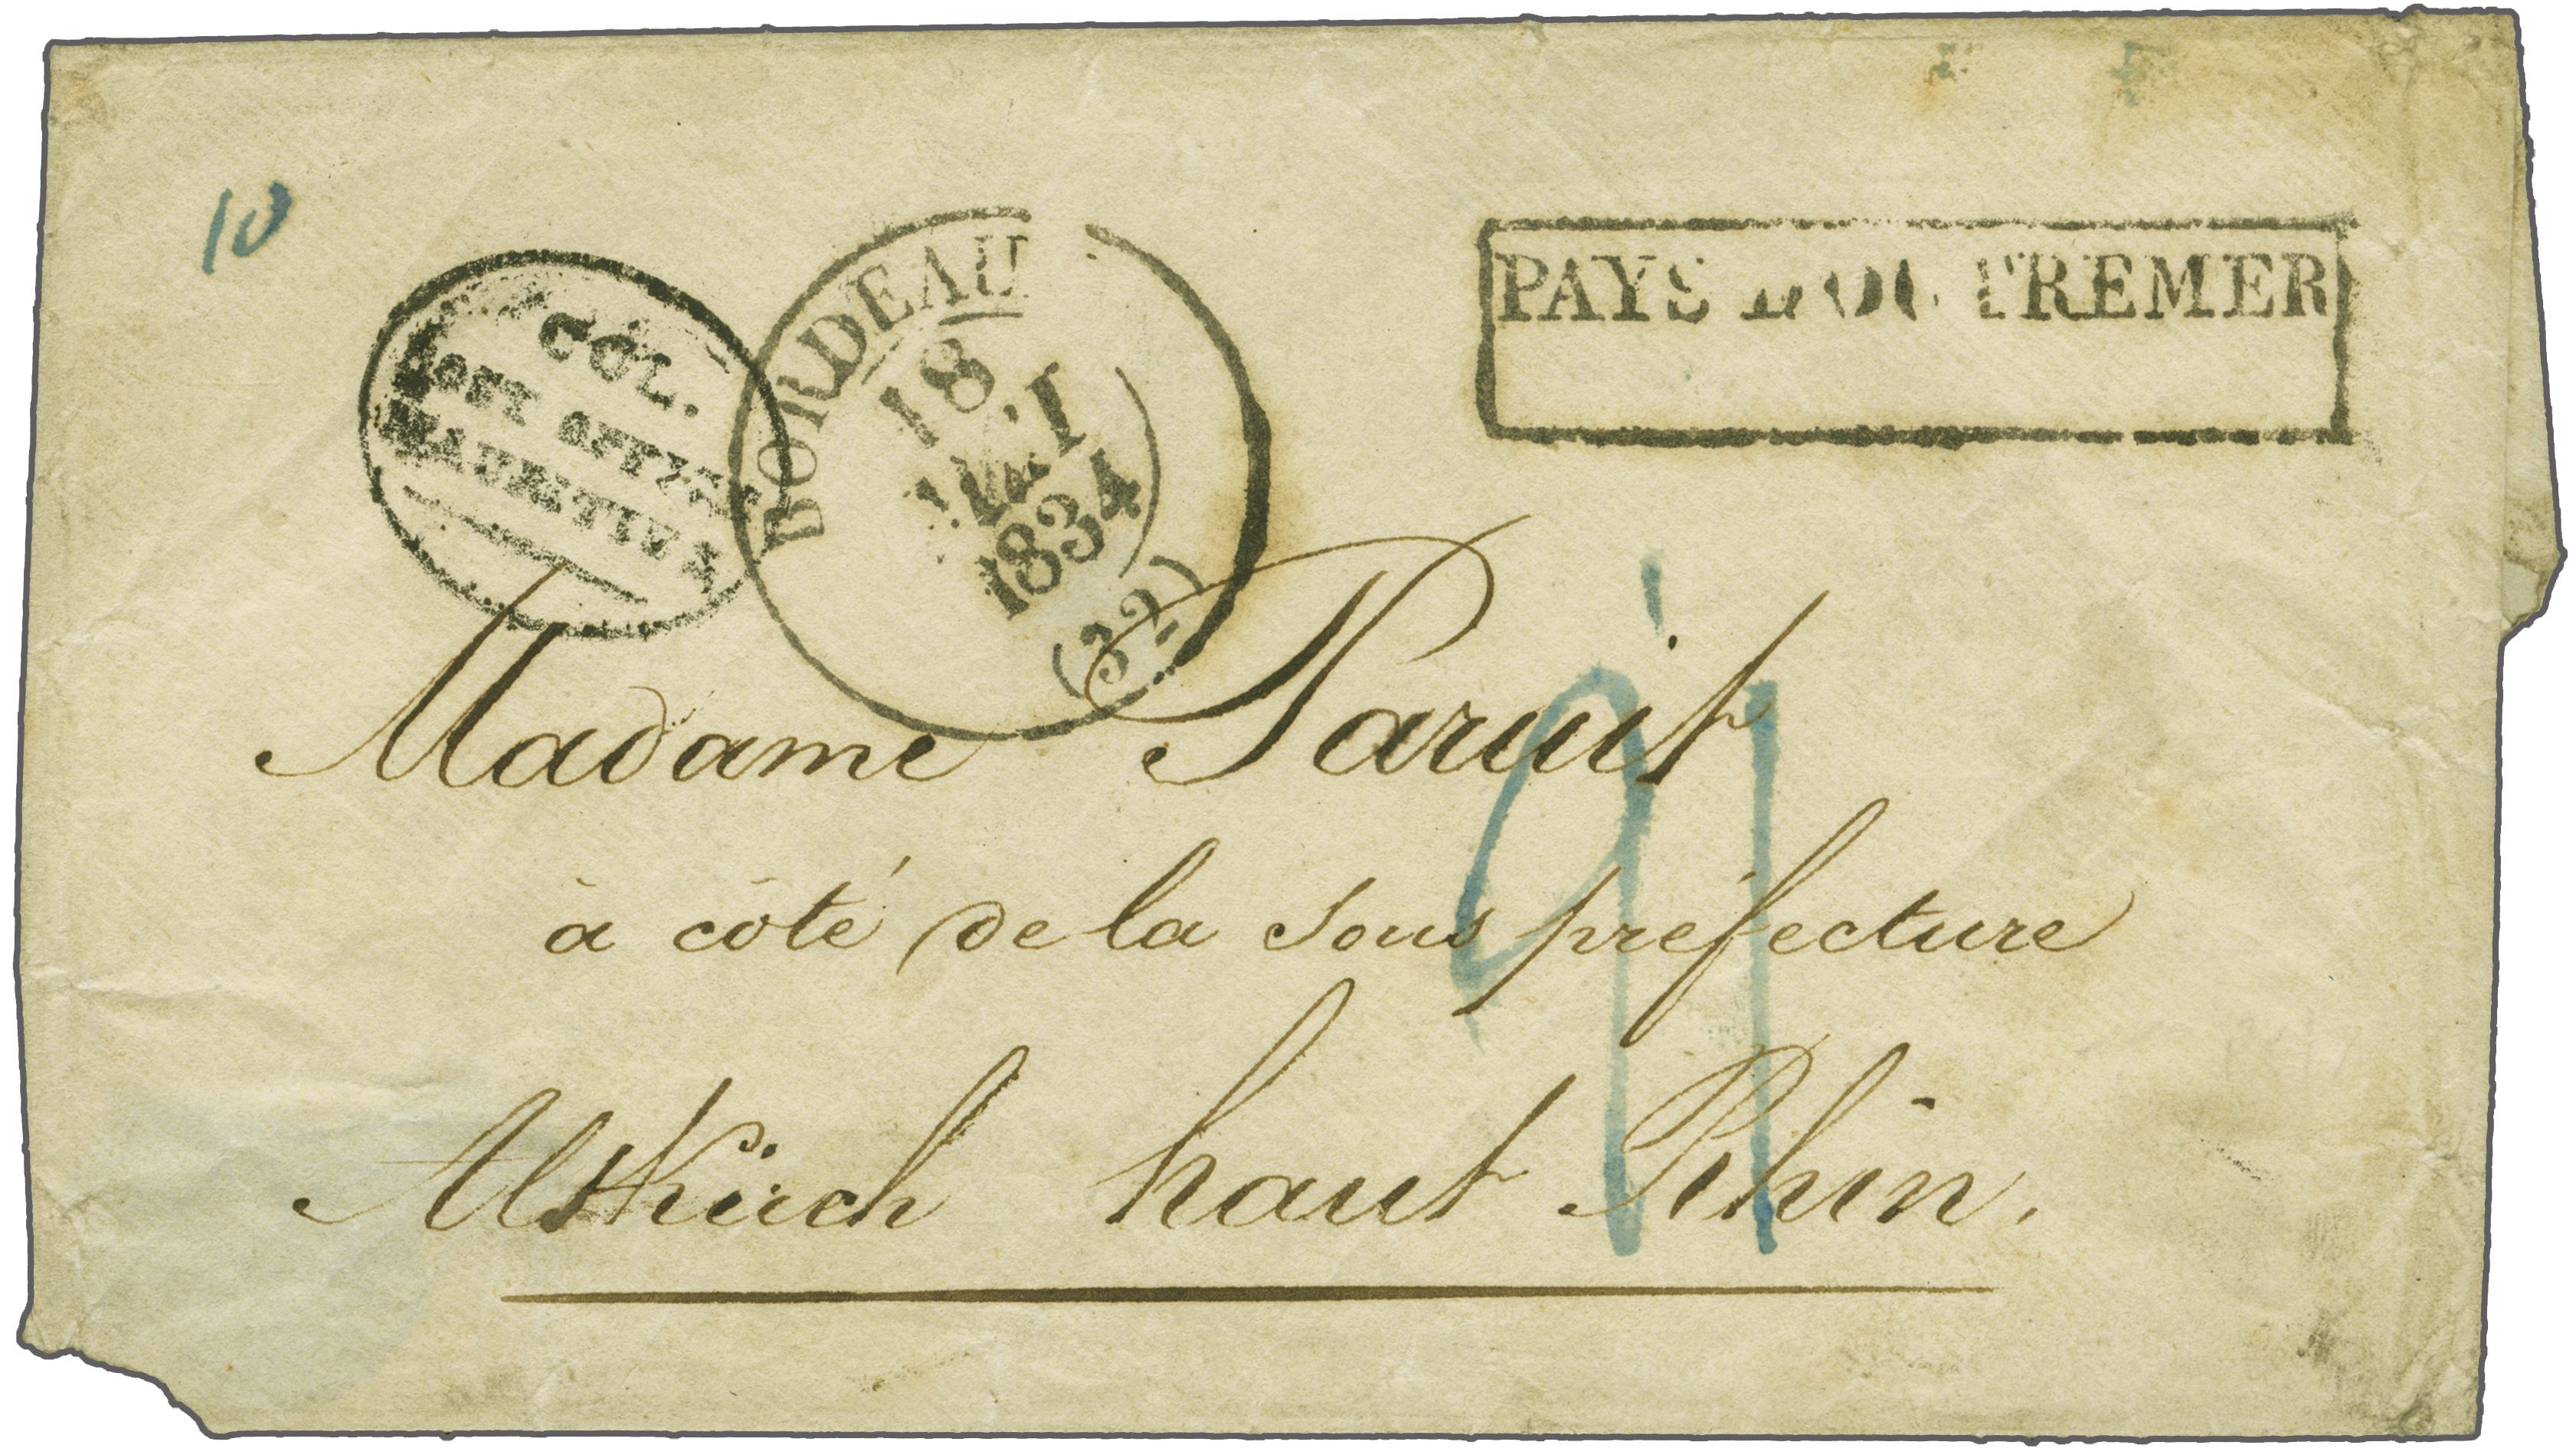 10
COL.
POST OFFICE
MAURITIUS
BORDEAU
18
1834
(32)
PAYS D'OUTREMER
Madame Paruit
à côté de la sous préfecture
Altkirch haut Rhin.